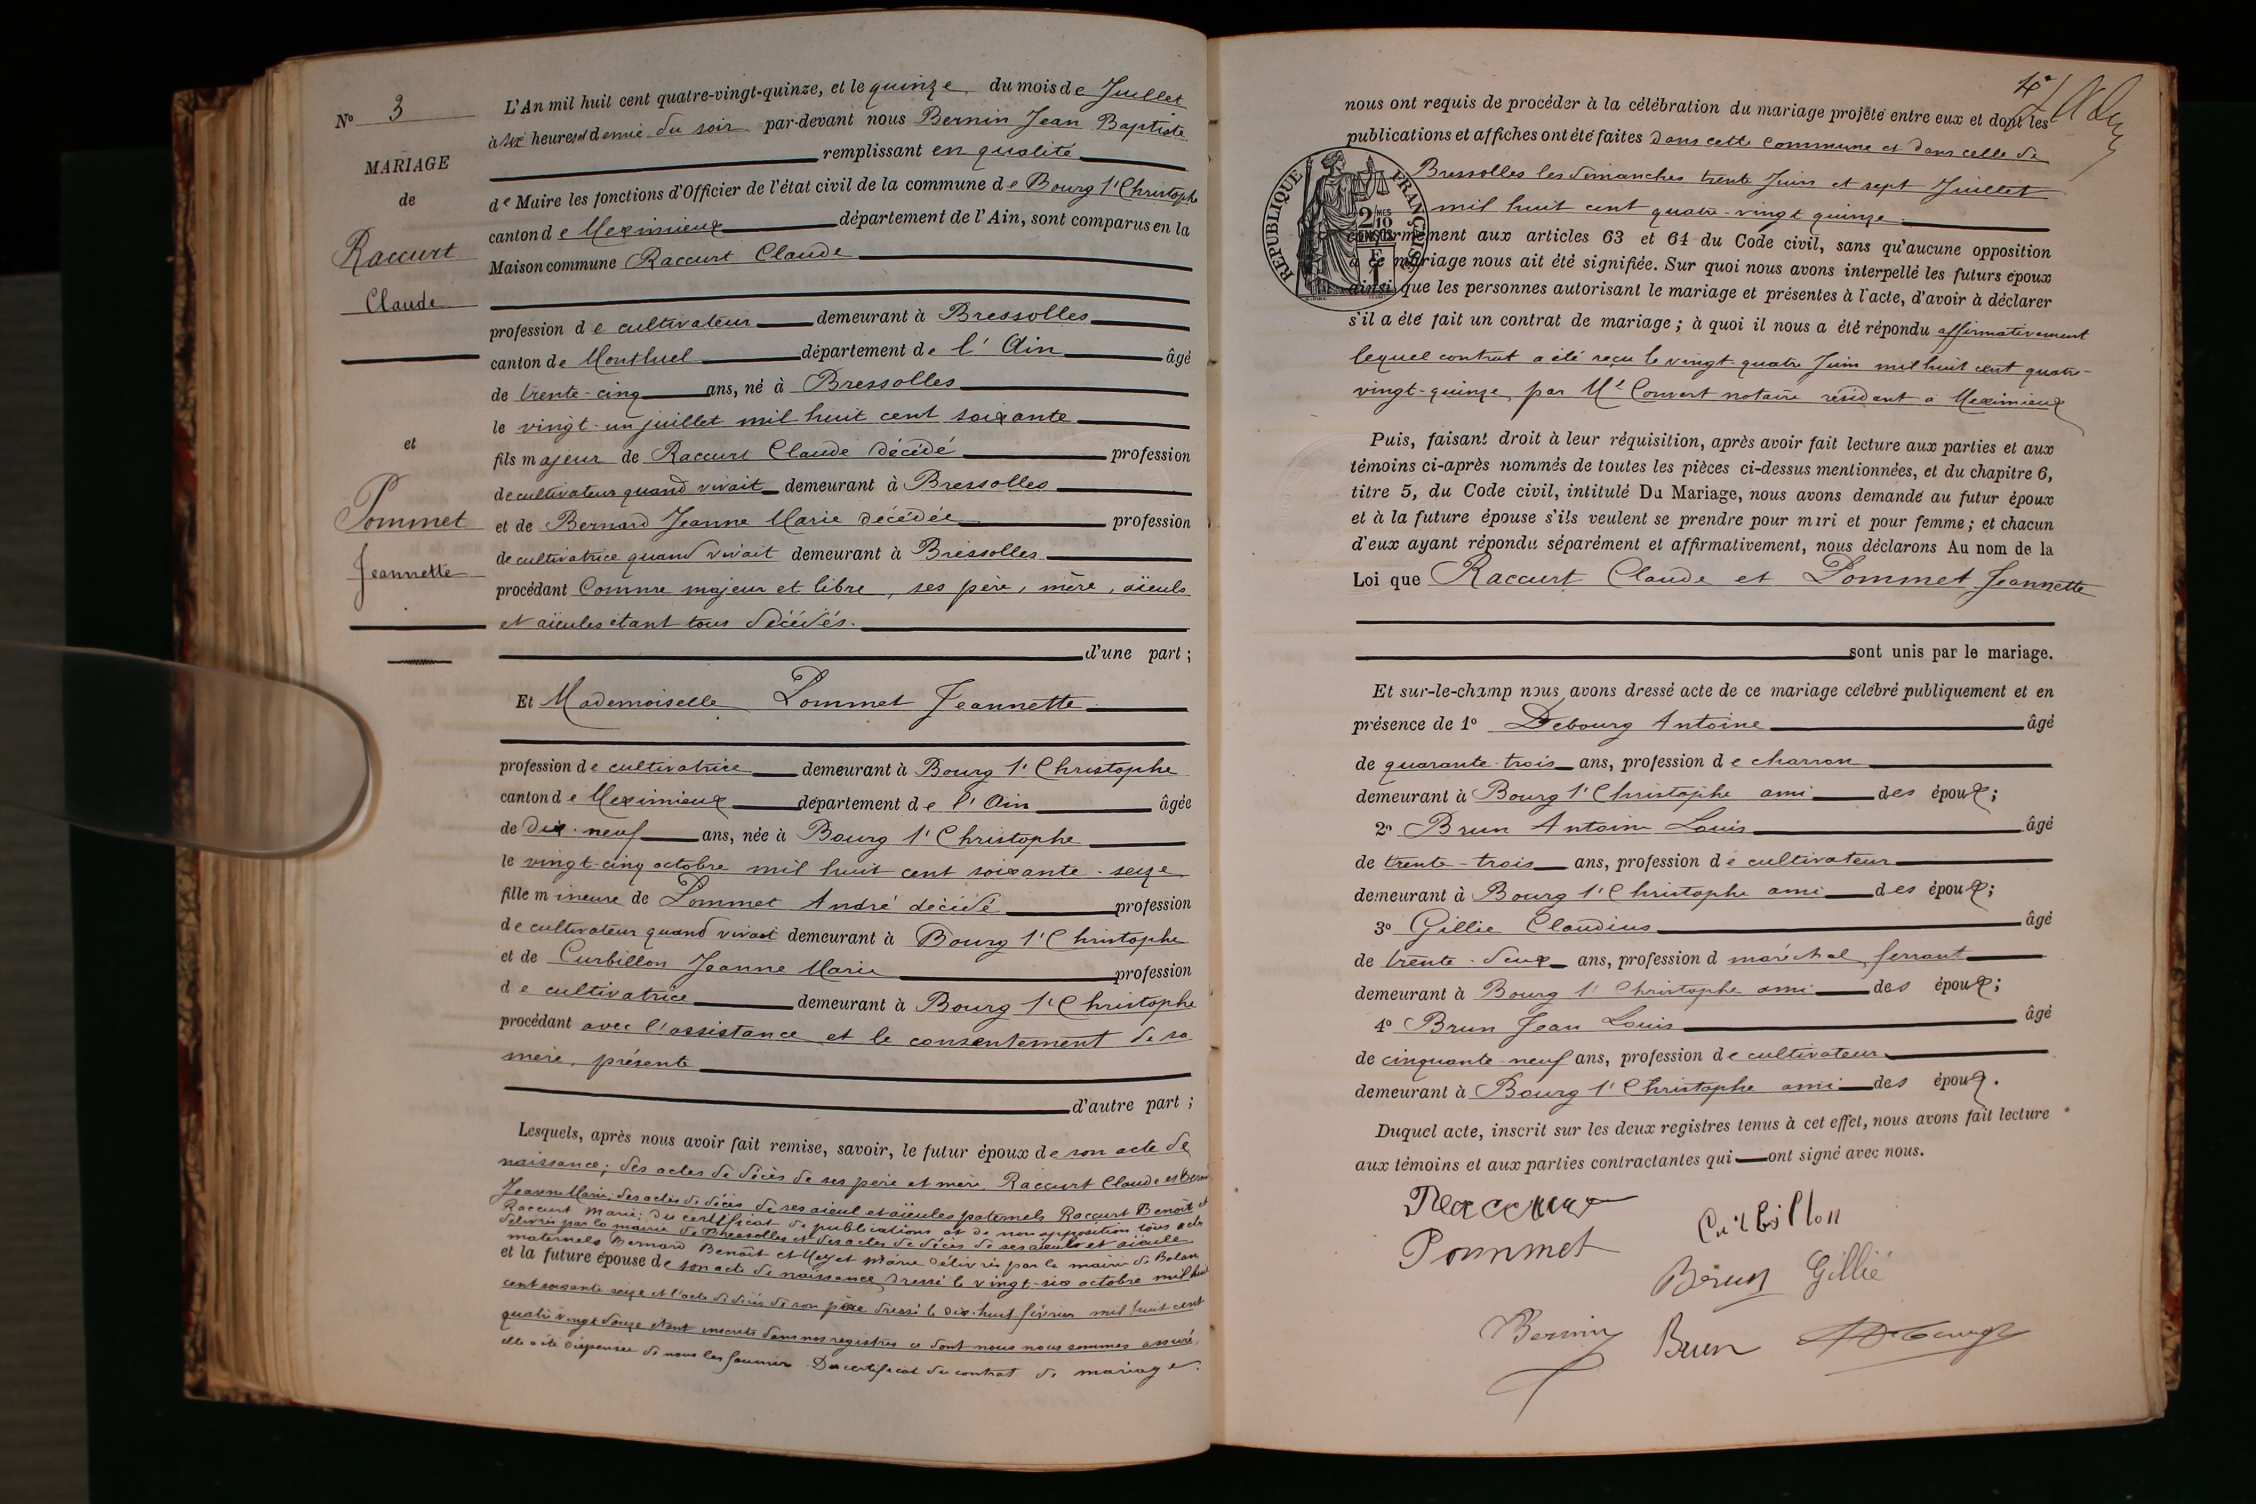 N° 3
MARIAGE
de
Raccurt
Claude
et
Pommet
Jeannette
L'An mil huit cent quatre-vingt-quinze, et le quinze du mois de Juillet
à six heures et demie du soir par-devant nous Bernin Jean Baptiste
remplissant en qualité
de Maire les fonctions d'Officier de l'état civil de la commune de Bourg St Christophe
canton de Meximieux département de l'Ain, sont comparus en la
Maison commune Raccurt Claude
profession de cultivateur demeurant à Bressolles
canton de Montluel département de l'Ain âgé
de trente-cinq ans, né à Bressolles
le vingt-un juillet mil huit cent soixante
fils majeur de Raccurt Claude décédé profession
de cultivateur quand vivait demeurant à Bressolles
et de Bernard Jeanne Marie décédée profession
de cultivatrice quand vivait demeurant à Bressolles
procédant Comme majeur et libre, ses père, mère, aïeuls
et aïeules étant tous décédés.
d'une part;
Et Mademoiselle Pommet Jeannette
profession de cultivatrice demeurant à Bourg St Christophe
canton de Meximieux département de l'Ain âgée
de dix-neuf ans, née à Bourg St Christophe
le vingt-cinq octobre mil huit cent soixante-seize
fille mineure de Pommet André décédé profession
de cultivateur quand vivait demeurant à Bourg St Christophe
et de Curbillon Jeanne Marie profession
de cultivatrice demeurant à Bourg St Christophe
procédant avec l'assistance et le consentement de sa
mère, présente
d'autre part;
Lesquels, après nous avoir fait remise, savoir, le futur époux de son acte de
naissance; des actes de décès de ses père et mère Raccurt Claude et Bernard
Jeanne Marie; des actes de décès de ses aïeul et aïeules paternels Raccurt Benoît et
Raccurt Marie; du certificat de publications et de non opposition tous actes
délivrés par la mairie de Bressolles et des actes de décès de ses aïeuls et aïeule
maternels Bernard Benoît et Mey et Marie délivrés par la mairie de Balan
et la future épouse de son acte de naissance dressé le vingt-six octobre mil huit
cent soixante seize et l'acte de décès de son père dressé le dix-huit février mil huit cent
quatre vingt douze étant inscrits dans nos registres ce dont nous nous sommes assuré,
elle a été dispensée de nous les fournir. Du certificat du contrat de mariage.
4e
nous ont requis de procéder à la célébration du mariage projeté entre eux et dont les
publications et affiches ont été faites dans cette commune et dans celle de
Bressolles les dimanches trente Juin et sept Juillet
mil huit cent quatre-vingt quinze
RÉPUBLIQUE FRANÇAISE
2/10
EN SUS
conformément aux articles 63 et 64 du Code civil, sans qu'aucune opposition
à ce mariage nous ait été signifiée. Sur quoi nous avons interpellé les futurs époux
ainsi que les personnes autorisant le mariage et présentes à l'acte, d'avoir à déclarer
s'il a été fait un contrat de mariage; à quoi il nous a été répondu affirmativement
lequel contrat a été reçu le vingt-quatre Juin mil huit cent quatre-
vingt-quinze par Me Convert notaire résidant à Meximieux
Puis, faisant droit à leur réquisition, après avoir fait lecture aux parties et aux
témoins ci-après nommés de toutes les pièces ci-dessus mentionnées, et du chapitre 6,
titre 5, du Code civil, intitulé Du Mariage, nous avons demandé au futur époux
et à la future épouse s'ils veulent se prendre pour mari et pour femme; et chacun
d'eux ayant répondu séparément et affirmativement, nous déclarons Au nom de la
Loi que Raccurt Claude et Pommet Jeannette
sont unis par le mariage.
Et sur-le-champ nous avons dressé acte de ce mariage célébré publiquement et en
présence de 1° Debourg Antoine âgé
de quarante-trois ans, profession de charron
demeurant à Bourg St Christophe ami des époux;
2° Brun Antoine Louis âgé
de trente-trois ans, profession de cultivateur
demeurant à Bourg St Christophe ami des époux;
3° Gillie Claudius âgé
de trente-deux ans, profession d maréchal ferrant
demeurant à Bourg St Christophe ami des époux;
4° Brun Jean Louis âgé
de cinquante-neuf ans, profession de cultivateur
demeurant à Bourg St Christophe ami des époux.
Duquel acte, inscrit sur les deux registres tenus à cet effet, nous avons fait lecture
aux témoins et aux parties contractantes qui ont signé avec nous.
Raccurt
Curbillon
Pommet
Brun Gillié
Bernin Brun Debourg